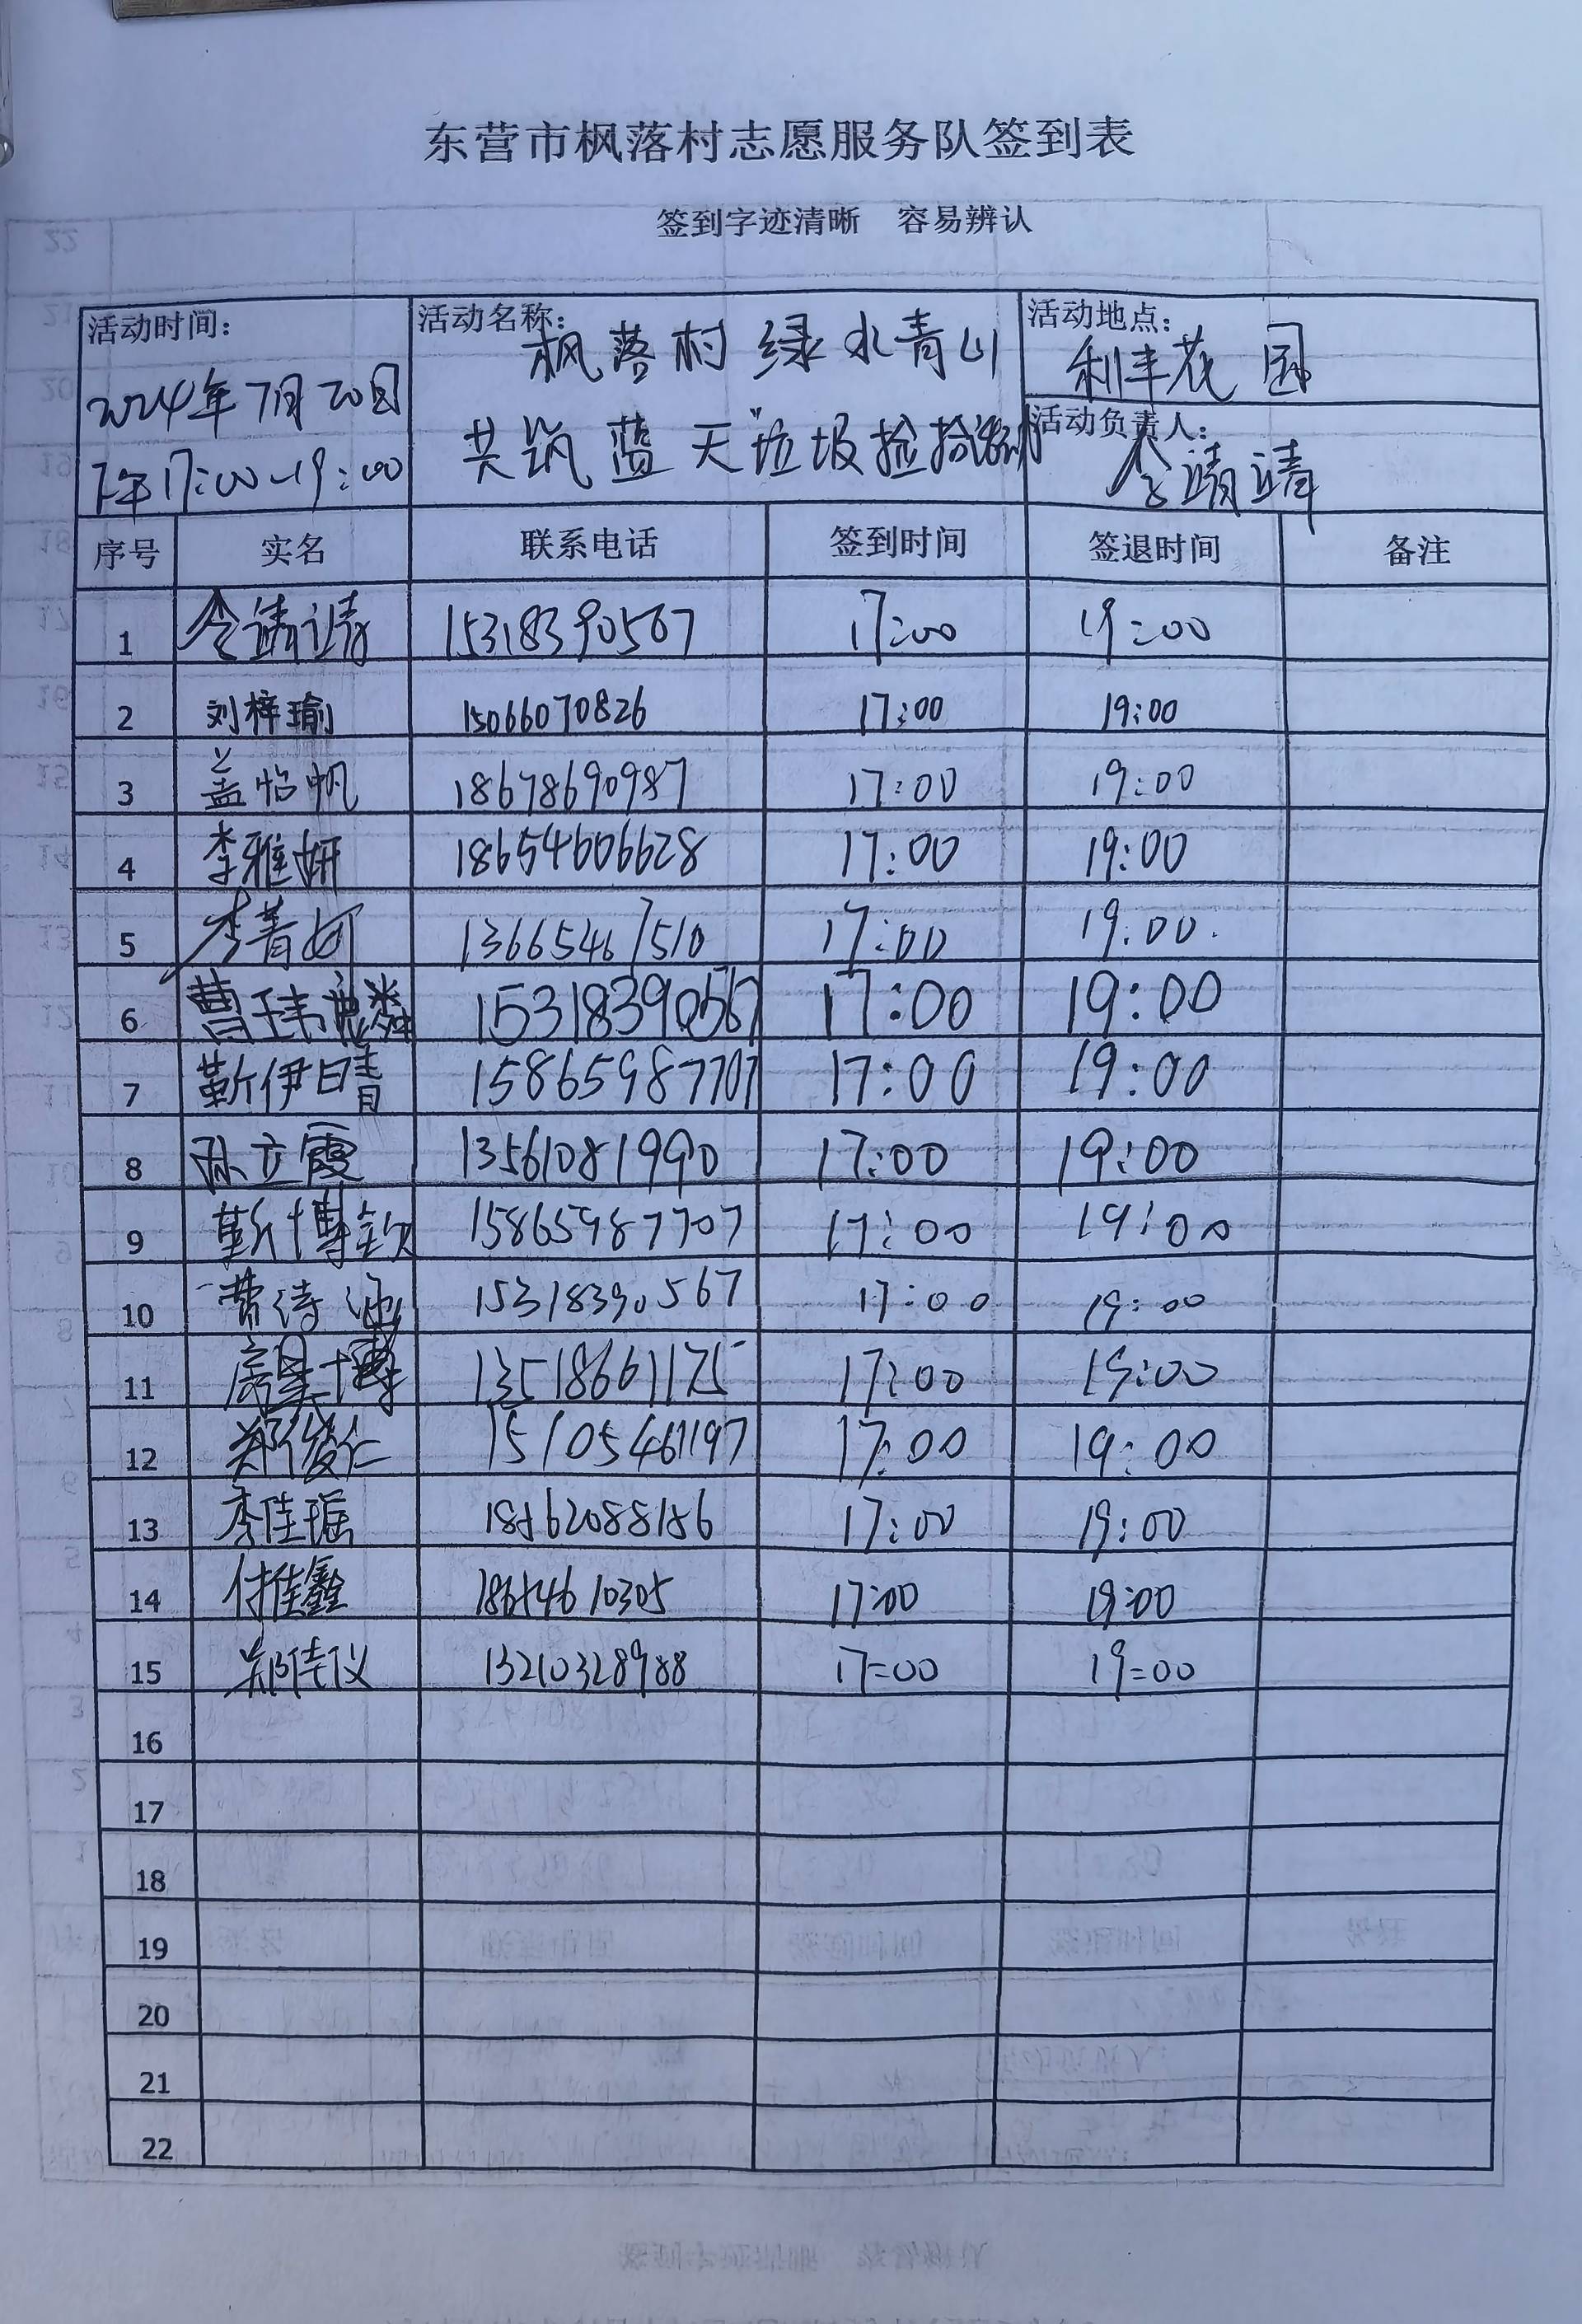 东营市枫落村志愿服务队签到表
签到字迹清晰 容易辨认
活动时间: 活动名称: 活动地点:
枫落村绿水青山 利丰花园
2024年7月20日 共筑蓝天垃圾捡拾活动 活动负责人:
下午17:00-19:00
序号 实名 联系电话 签到时间 签退时间 备注
1 15318390567 17:00 19:00
2 刘梓瑜 15066070826 17:00 19:00
3 盖怡帆 18678690987 17:00 19:00
4 李雅妍 18654606628 17:00 19:00
5 李菁 13665467510 17:00 19:00.
6 曹玮 15318390567 17:00 19:00
7 靳伊晴 15865987707 17:00 19:00
8 孙立霞 13561081990 17:00 19:00
9 靳博钦 15865987707 17:00 19:00
10 诗涵 15318390567 17:00 19:00
11 博 13518661175 17:00 19:00
12 郑俊仁 15105461197 17:00 19:00
13 李佳瑶 18562088156 17:00 19:00
14 付佳鑫 18654610305 17:00 19:00
15 郑佳仪 13210328988 17=00 19=00
16
17
18
19
20
21
22